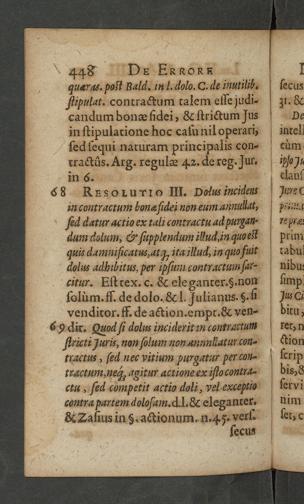 448 DE ERRORE
quæras. post Bald. in l. dolo. C. de inutilib.
stipulat. contractum talem esse judi-
candum bonæ fidei, & strictum Jus
in stipulatione hoc casu nil operari,
sed sequi naturam principalis con-
tractûs. Arg. regulæ 42. de reg. Jur.
in 6.
68 RESOLUTIO III. Dolus incidens
in contractum bonæ fidei non eum annullat,
sed datur actio ex tali contractu ad purgan-
dum dolum, & supplendum illud, in quo est
quis damnificatus, atq, ita illud, in quo fuit
dolus adhibitus, per ipsum contractum sar-
citur. Est tex. c. & eleganter. §. non
solùm. ff. de dolo. & l. Julianus. §. si
venditor. ff. de action. empt. & ven-
69 dit. Quod si dolus inciderit in contractum
stricti Juris, non solum non annullatur con-
tractus, sed nec vitium purgatur per con-
tractum, neq, agitur actione ex isto contra-
ctu, sed competit actio doli, vel exceptio
contra partem dolosam. d. l. & eleganter.
& Zasius in §. actionum. n. 45. vers.
secus
secus
31. &
De
intell
cùm
ipso
claus
Jure C
prim
tabu
nibus
simp
Jus Ci
bitu,
ret,
ction
scrip
bis, &
servi
nim
set, c